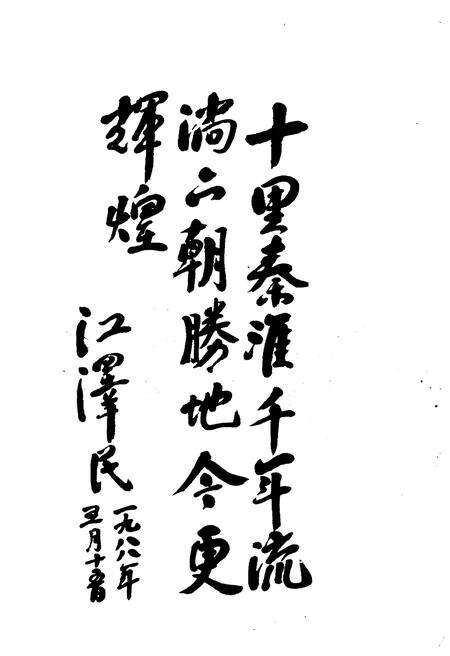 十里秦淮千年流
淌六朝勝地今更
輝煌
江澤民
一九八八年
五月十五日